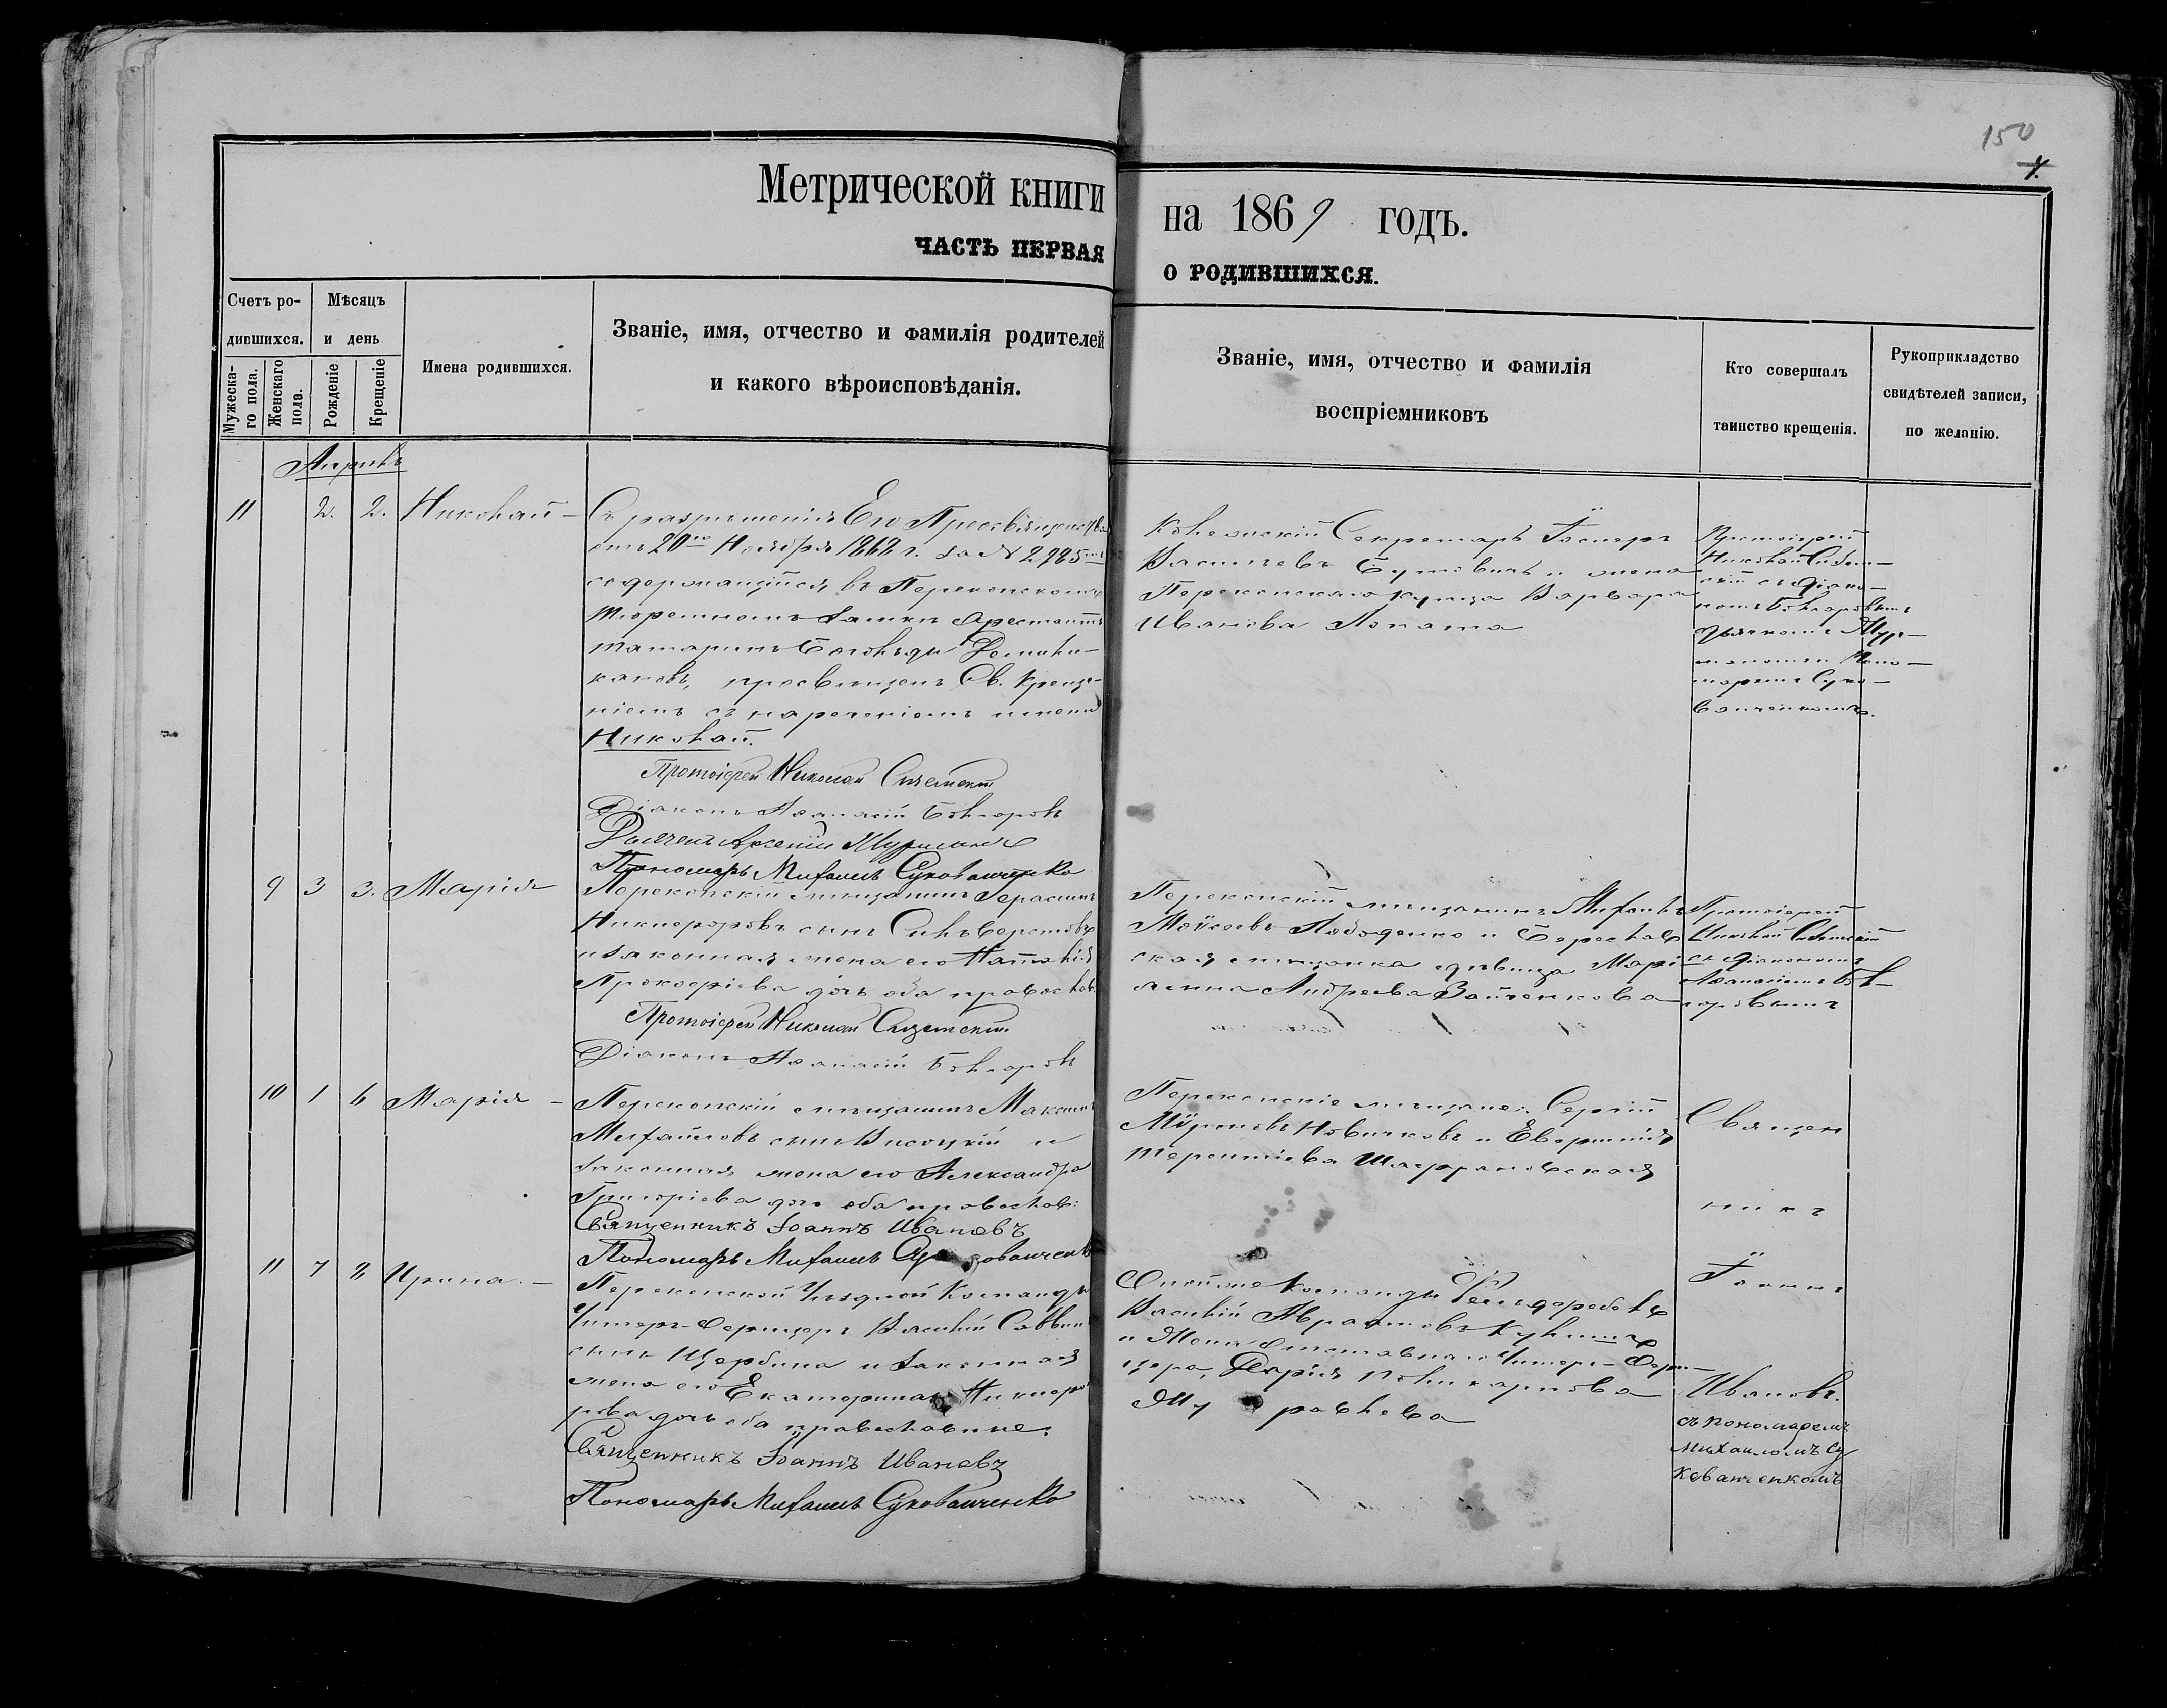 150
Метрической книги на 1869 годъ.
ЧАСТЬ ПЕРВАЯ о родившихся.
Счетъ ро-
дившихся.
Мужеска-
го пола.
Женскаго
пола.
Мѣсяцъ
и день
Рожденіе
Крещеніе
Имена родившихся.
Званіе, имя, отчество и фамилія родителей
и какого вѣроисповѣданія.
Званіе, имя, отчество и фамилія
воспріемниковъ
Кто совершалъ
таинство крещенія.
Рукоприкладство
свидѣтелей записи,
по желанію.
Апрѣль
11 2. 2. Николай
Съ разрѣшенія Его Преосвященства
отъ 20го Ноября 1868 г. за №
содержащійся въ Перекопскомъ
тюремномъ замкѣ арестантъ
татаринъ
просвѣщенъ Св. Креще-
ніемъ съ нареченіемъ имени
Николай.
Протоіерей Николай
Діаконъ Аѳанасій Болгаровъ
Дьячекъ Арсеній
Пономарь Михаилъ Суковатченко
Коллежскій Секретарь
Васильевъ и жена
Перекопскаго купца Варвара
Иванова Лопата
Протоіерей
Николай
съ діако-
номъ Болгаровымъ
дьячкомъ
и Поно-
маремъ Суко-
ватченкомъ.
9 3 3. Марія
Перекопскій мѣщанинъ Герасимъ
Никифоровъ сынъ
и законная жена его Наталія
Прокофіева дочь оба православ.
Протоіерей Николай
Діаконъ Аѳанасій Болгаровъ
Перекопскій мѣщанинъ Михаилъ
Моѵсеевъ и
ская мѣщанка дѣвица Марі-
анна Андреева Зайченкова
Протоіерей
Николай
съ діакономъ
Аѳанасіемъ Бол-
гаровымъ
10 1 6 Марія
Перекопскій мѣщанинъ Максимъ
Михайловъ сынъ Высоцкій и
законная жена его Александра
Григоріева дочь оба православ:
Священникъ Іоаннъ Ивановъ
Пономарь Михаилъ
Перекопскіе мѣщане: Сергій
Мѵроновъ Новичковъ и
Терентіева
Священ
никъ
11 7 8 Ирина.
Перекопской Уѣздной Команды
Унтеръ-Офицеръ Василій Саввинъ
сынъ Щербина и законная
жена его Екатерина Никифо-
рова дочь оба православные.
Священникъ Іоаннъ Ивановъ
Пономарь Михаилъ Суковатченко
Этой же команды Фельдфебель
Василій Абрамовъ
и Жена отставнаго Унтеръ-Офи-
цера, Дарія Поликарпова
Іоаннъ
Ивановъ.
съ пономаремъ
Михаиломъ Су
коватченкомъ